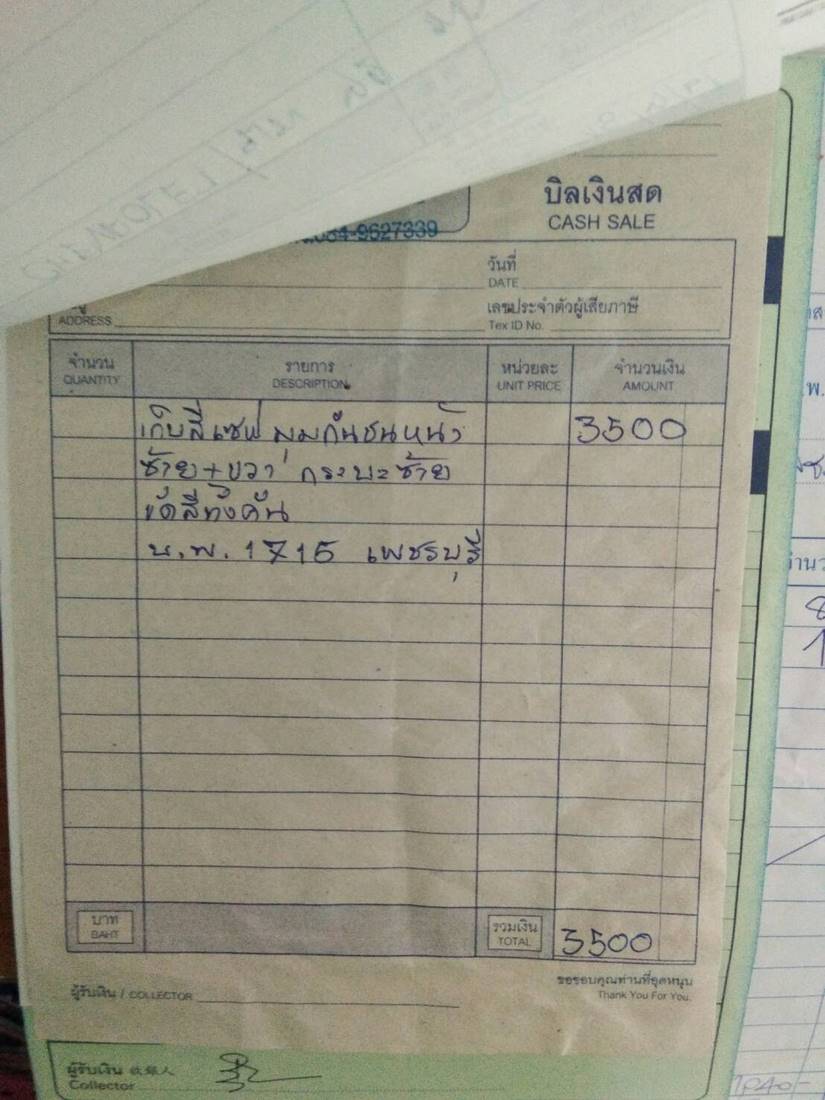 บิลเงินสด
CASH SALE
084-9627339
วันที่
DATE
เลขประจำตัวผู้เสียภาษี
Tex ID No.
ADDRESS
จำนวน รายการ หน่วยละ จำนวนเงิน
QUANTITY DESCRIPTION UNIT PRICE AMOUNT
เก็บสีเซฟ มุมกันชนหน้า 3500
ซ้าย+ขวา กระบะซ้าย
ขัดสีทั้งคัน
บ.พ. 1715 เพชรบุรี
บาท รวมเงิน
BAHT TOTAL 3500
ขอขอบคุณท่านที่อุดหนุน
Thank You For You.
ผู้รับเงิน / COLLECTOR
ผู้รับเงิน 收銀人
Collector